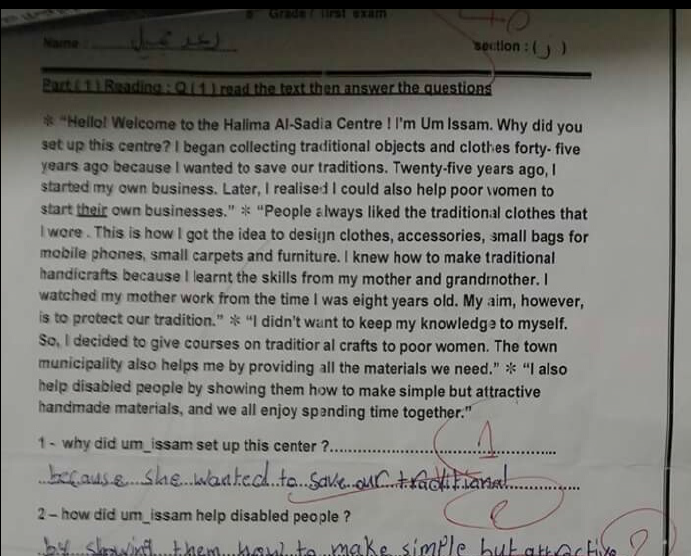 8th Grade / first exam
Name : رعد جميل section : ( ز )
Part ( 1 ) Reading : Q ( 1 ) read the text then answer the questions
* "Hello! Welcome to the Halima Al-Sadia Centre ! I'm Um Issam. Why did you
set up this centre? I began collecting traditional objects and clothes forty- five
years ago because I wanted to save our traditions. Twenty-five years ago, I
started my own business. Later, I realised I could also help poor women to
start their own businesses." * "People always liked the traditional clothes that
I wore . This is how I got the idea to design clothes, accessories, small bags for
mobile phones, small carpets and furniture. I knew how to make traditional
handicrafts because I learnt the skills from my mother and grandmother. I
watched my mother work from the time I was eight years old. My aim, however,
is to protect our tradition." * "I didn't want to keep my knowledge to myself.
So, I decided to give courses on traditional crafts to poor women. The town
municipality also helps me by providing all the materials we need." * "I also
help disabled people by showing them how to make simple but attractive
handmade materials, and we all enjoy spending time together."
1 - why did um_issam set up this center ?.......... 1
because she wanted to save our traditional
2 – how did um_issam help disabled people ?
by showing them how to make simple but attractive